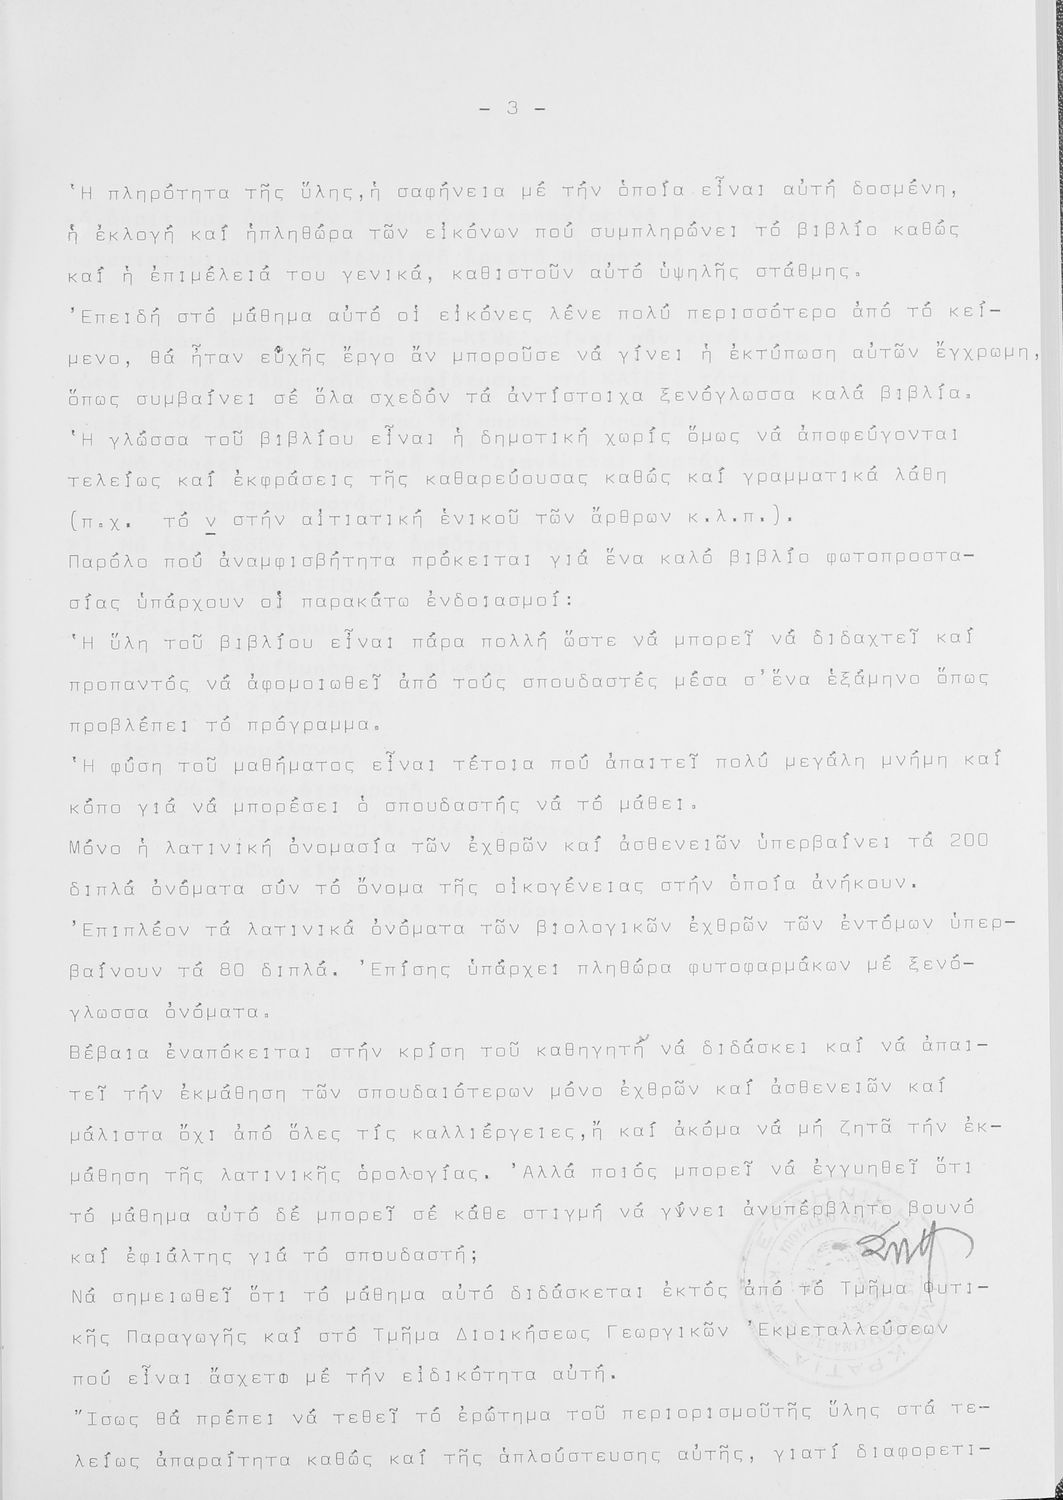 - 3 -
Ἡ πληρότητα τῆς ὕλης,ἡ σαφήνεια μέ τήν ὁποία εἶναι αὐτή δοσμένη,
ἡ ἐκλογή καί ἡπληθώρα τῶν εἰκόνων πού συμπληρώνει τό βιβλίο καθώς
καί ἡ ἐπιμέλειά του γενικά, καθιστοῦν αὐτό ὑψηλῆς στάθμης.
Ἐπειδή στό μάθημα αὐτό οἱ εἰκόνες λένε πολύ περισσότερο ἀπό τό κεί-
μενο, θά ἦταν εὐχῆς ἔργο ἄν μποροῦσε νά γίνει ἡ ἐκτύπωση αὐτῶν ἔγχρωμη,
ὅπως συμβαίνει σέ ὅλα σχεδόν τά ἀντίστοιχα ξενόγλωσσα καλά βιβλία.
Ἡ γλώσσα τοῦ βιβλίου εἶναι ἡ δημοτική χωρίς ὅμως νά ἀποφεύγονται
τελείως καί ἐκφράσεις τῆς καθαρεύουσας καθώς καί γραμματικά λάθη
(π.χ. τό ν στήν αἰτιατική ἑνικοῦ τῶν ἄρθρων κ.λ.π.).
Παρόλο πού ἀναμφισβήτητα πρόκειται γιά ἕνα καλό βιβλίο φωτοπροστα-
σίας ὑπάρχουν οἱ παρακάτω ἐνδοιασμοί:
Ἡ ὕλη τοῦ βιβλίου εἶναι πάρα πολλή ὥστε νά μπορεῖ νά διδαχτεῖ καί
προπαντός νά ἀφομοιωθεῖ ἀπό τούς σπουδαστές μέσα σ'ἕνα ἑξάμηνο ὅπως
προβλέπει τό πρόγραμμα.
Ἡ φύση τοῦ μαθήματος εἶναι τέτοια πού ἀπαιτεῖ πολύ μεγάλη μνήμη καί
κόπο γιά νά μπορέσει ὁ σπουδαστής νά τό μάθει.
Μόνο ἡ λατινική ὀνομασία τῶν ἐχθρῶν καί ἀσθενειῶν ὑπερβαίνει τά 200
διπλά ὀνόματα σύν τό ὄνομα τῆς οἰκογένειας στήν ὁποία ἀνήκουν.
Ἐπιπλέον τά λατινικά ὀνόματα τῶν βιολογικῶν ἐχθρῶν τῶν ἐντόμων ὑπερ-
βαίνουν τά 80 διπλά. Ἐπίσης ὑπάρχει πληθώρα φυτοφαρμάκων μέ ξενό-
γλωσσα ὀνόματα.
Βέβαια ἐναπόκειται στήν κρίση τοῦ καθηγητή νά διδάσκει καί νά ἀπαι-
τεῖ τήν ἐκμάθηση τῶν σπουδαιότερων μόνο ἐχθρῶν καί ἀσθενειῶν καί
μάλιστα ὄχι ἀπό ὅλες τίς καλλιέργειες,ἤ καί ἀκόμα νά μή ζητᾶ τήν ἐκ-
μάθηση τῆς λατινικῆς ὁρολογίας. Ἀλλά ποιός μπορεῖ νά ἐγγυηθεῖ ὅτι
τό μάθημα αὐτό δέ μπορεῖ σέ κάθε στιγμή νά γίνει ἀνυπέρβλητο βουνό
καί ἐφιάλτης γιά τό σπουδαστή;
Νά σημειωθεῖ ὅτι τό μάθημα αὐτό διδάσκεται ἐκτός ἀπό τό Τμῆμα Φυτι-
κῆς Παραγωγῆς καί στό Τμῆμα Διοικήσεως Γεωργικῶν Ἐκμεταλλεύσεων
πού εἶναι ἄσχετο μέ τήν εἰδικότητα αὐτή.
Ἴσως θά πρέπει νά τεθεῖ τό ἐρώτημα τοῦ περιορισμοῦτῆς ὕλης στά τε-
λείως ἀπαραίτητα καθώς καί τῆς ἁπλούστευσης αὐτῆς, γιατί διαφορετι-